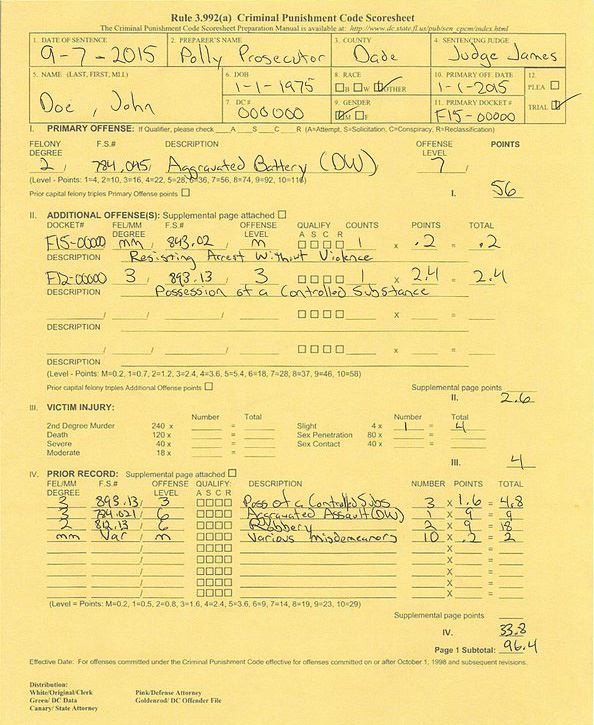 Rule 3.992(a) Criminal Punishment Code Scoresheet
The Criminal Punishment Code Scoresheet Preparation Manual is available at: http://www.dc.state.fl.us/pub/sen_cpcm/index.html
1. DATE OF SENTENCE 2. PREPARER'S NAME 3. COUNTY 4. SENTENCING JUDGE
9-7-2015 Polly Prosecutor Dade Judge James
5. NAME (LAST, FIRST, MI.I.) 6. DOB 8. RACE 10. PRIMARY OFF. DATE 12.
Doe, John 1-1-1975 B W OTHER 1-1-2015 PLEA
7. DC # 9. GENDER 11. PRIMARY DOCKET # TRIAL
000000 M F F15-00000
I. PRIMARY OFFENSE: If Qualifier, please check __A __S __C __R (A=Attempt, S=Solicitation, C=Conspiracy, R=Reclassification)
FELONY DEGREE F.S.# DESCRIPTION OFFENSE LEVEL POINTS
2 / 784.045/ Aggravated Battery (DW) 7 /
(Level - Points: 1=4, 2=10, 3=16, 4=22, 5=28, 6=36, 7=56, 8=74, 9=92, 10=116)
Prior capital felony triples Primary Offense points I. 56
II. ADDITIONAL OFFENSE(S): Supplemental page attached
DOCKET# FEL/MM DEGREE F.S.# OFFENSE LEVEL QUALIFY A S C R COUNTS POINTS TOTAL
F15-00000 mm / 843.02 / m 1 x .2 = .2
DESCRIPTION Resisting Arrest Without Violence
F12-00000 3 / 893.13 / 3 1 x 2.4 = 2.4
DESCRIPTION Possession of a Controlled Substance
/ / x =
DESCRIPTION
/ / x =
DESCRIPTION
(Level - Points: M=0.2, 1=0.7, 2=1.2, 3=2.4, 4=3.6, 5=5.4, 6=18, 7=28, 8=37, 9=46, 10=58)
Prior capital felony triples Additional Offense points Supplemental page points
II. 2.6
III. VICTIM INJURY:
Number Total Number Total
2nd Degree Murder 240 x = Slight 4 x 1 = 4
Death 120 x = Sex Penetration 80 x =
Severe 40 x = Sex Contact 40 x =
Moderate 18 x =
III. 4
IV. PRIOR RECORD: Supplemental page attached
FEL/MM DEGREE F.S.# OFFENSE LEVEL QUALIFY: A S C R DESCRIPTION NUMBER POINTS TOTAL
3 893.13 / 3 Poss of a Controlled Subs 3 X 1.6 = 4.8
3 784.021 / 6 Aggravated Assault (DW) 1 X 9 = 9
2 812.13 / 6 Robbery 2 X 9 = 18
mm Var / m Various misdemeanors 10 X .2 = 2
/ X =
/ X =
/ X =
/ X =
/ X =
(Level = Points: M=0.2, 1=0.5, 2=0.8, 3=1.6, 4=2.4, 5=3.6, 6=9, 7=14, 8=19, 9=23, 10=29)
Supplemental page points
IV. 33.8
Page 1 Subtotal: 96.4
Effective Date: For offenses committed under the Criminal Punishment Code effective for offenses committed on or after October 1, 1998 and subsequent revisions.
Distribution:
White/Original/Clerk Pink/Defense Attorney
Green/ DC Data Goldenrod/ DC Offender File
Canary/ State Attorney